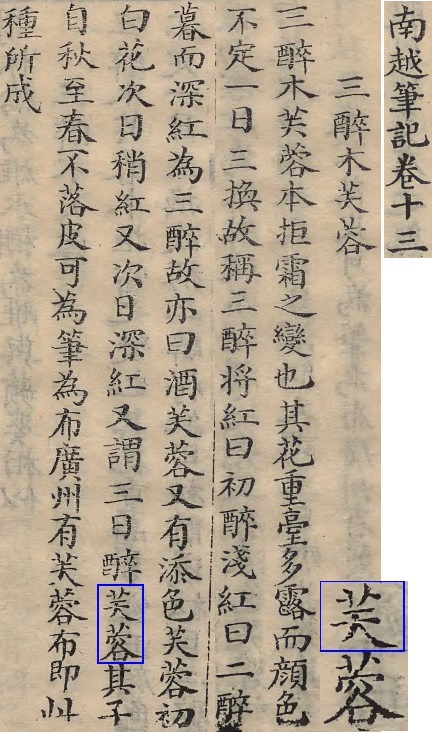 南越筆記卷十三
三醉木芙蓉
芙蓉
三醉木芙蓉本拒霜之變也其花重臺多露而顔色
不定一日三換故稱三醉将紅曰初醉淺紅曰二醉
暮而深紅為三醉故亦曰酒芙蓉又有添色芙蓉初
白花次日稍紅又次日深紅又謂三日醉芙蓉其子
自秋至春不落皮可為筆為布廣州有芙蓉布即此
種所成